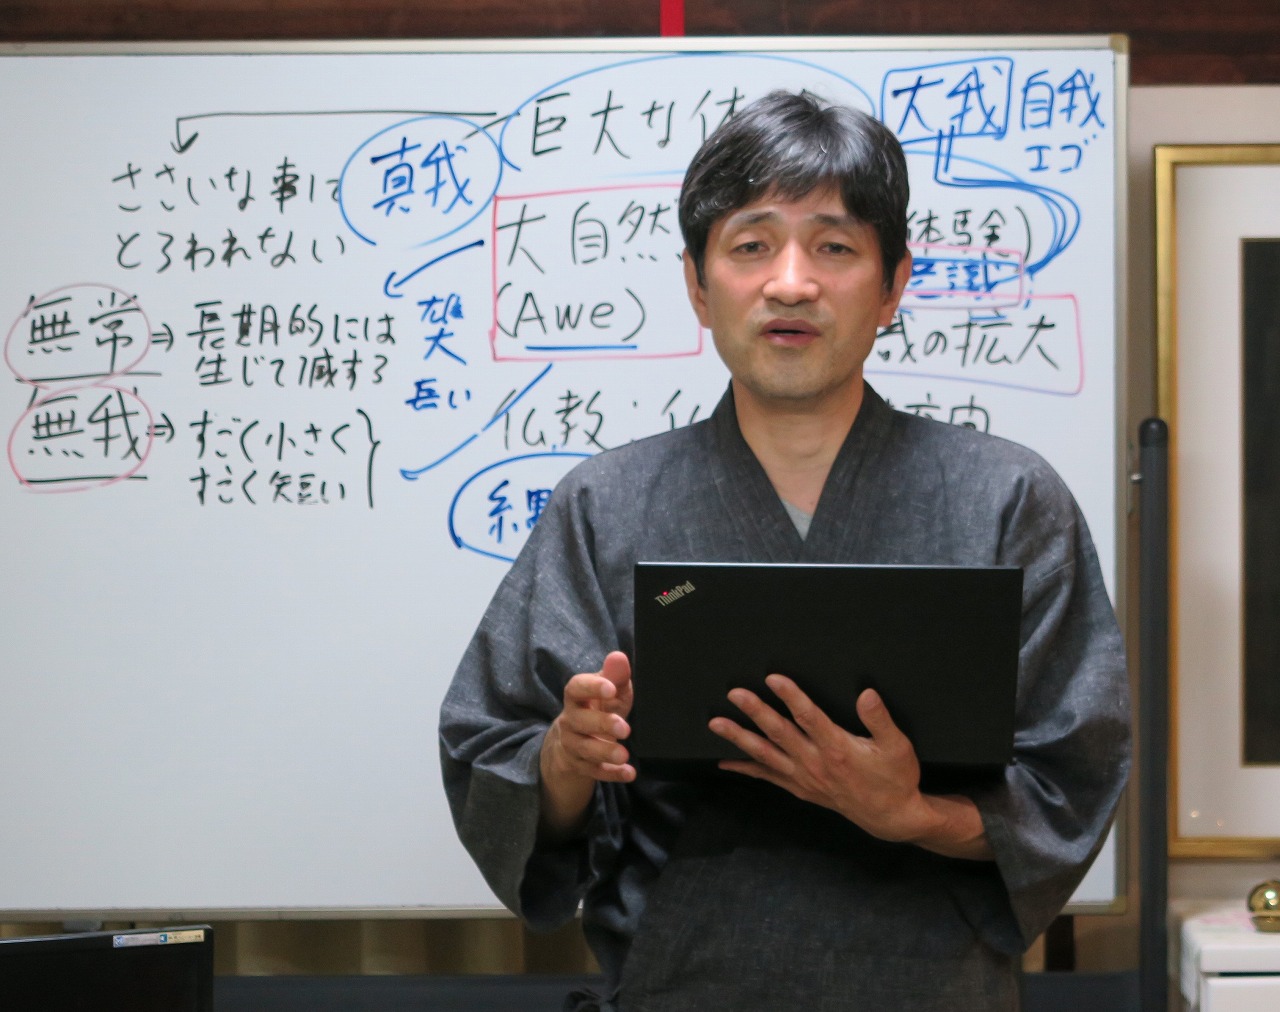 巨大な体
大我 自我
エゴ
真我
ささいな事に
とらわれない
大自然
体験)
意識
(Awe)
雄大
長い
識の拡大
無常⇒長期的には
生じて滅する
無我⇒すごく小さく
すごく短い
仏教:仏
宇宙
ThinkPad